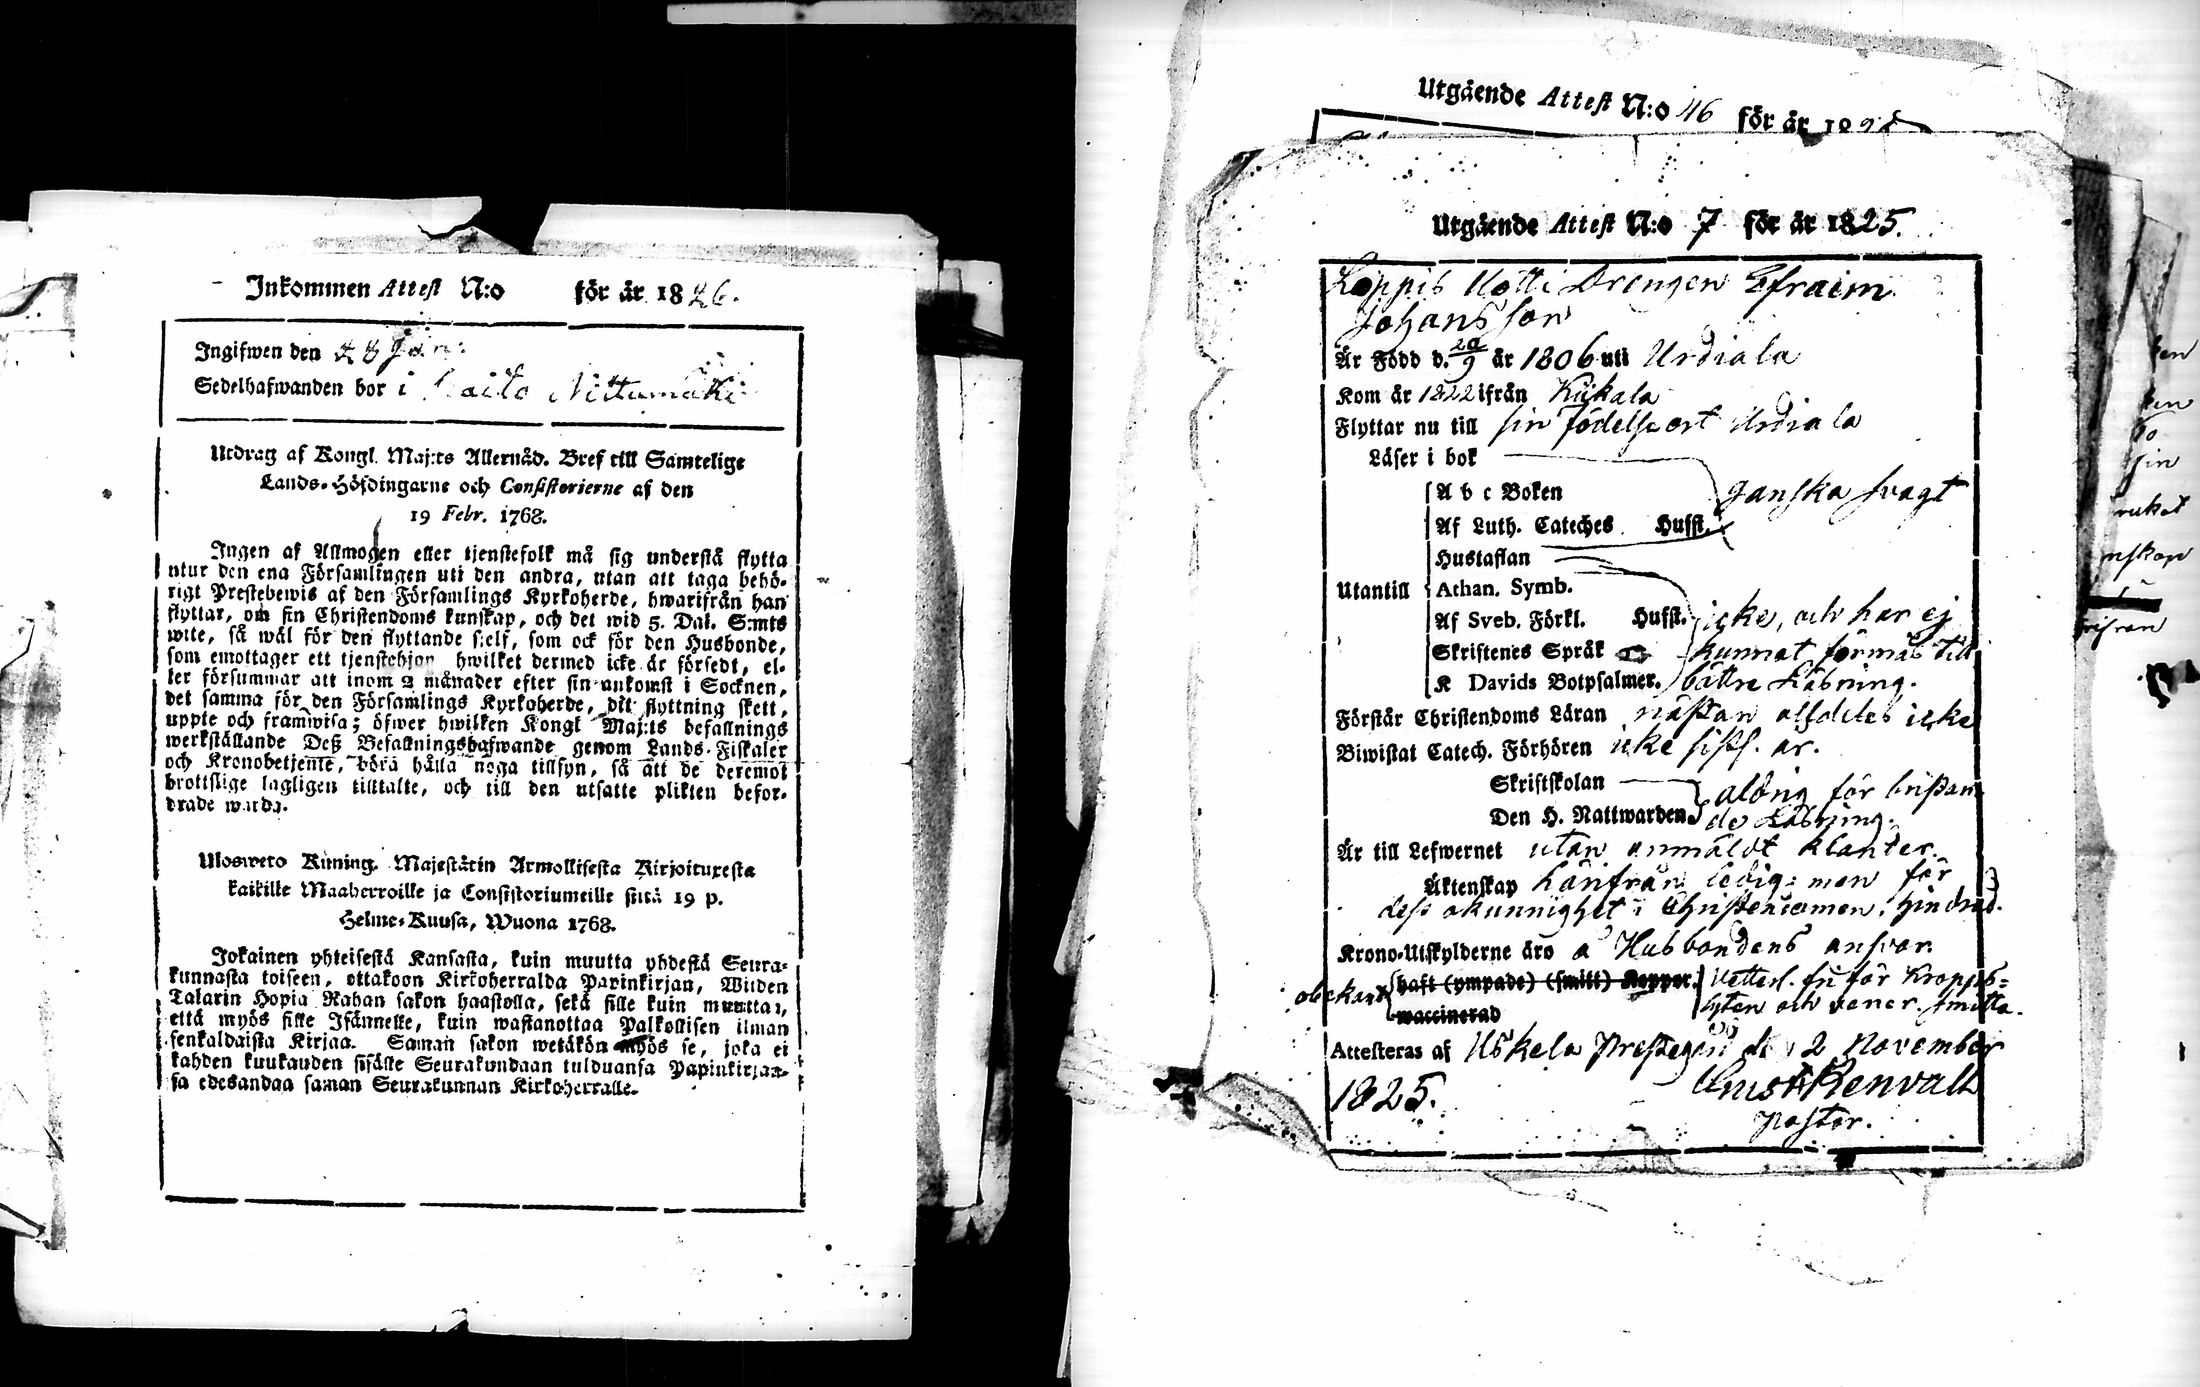 Inkommen Attest N:o för är 1826.
Ingifwen den 28 Jan:
Sedelhafwanden bor i Nittumäki
Utdrag af Kongl. Maj:ts Allernåd. Bref till Samtelige
Lands-Höfdingarne och Consistorierne af den
19 Febr. 1768.
Ingen af Allmogen eller tjenstefolk må sig understå flytta
utur den ena Församlingen uti den andra, utan att taga behö-
rigt Prestebewis af den Församlings Kyrkoherde, hwarifrån han
flyttar, om sin Christendoms kunskap, och det wid 5. Dal. S:mts
wite, så wäl för den flyttande sielf, som ock för den Husbonde,
som emottager ett tjenstehjon hwilket dermed icke är försedt, el-
ler försummar att inom 2 månader efter sin ankomst i Socknen,
det samma för den Församlings Kyrkoherde, dit flyttning skett,
uppte och framwisa; öfwer hwilken Kongl Maj:ts befallnings
werkställande Deß Befallningshafwande genom Lands-Fiskaler
och Kronobetjente, böra hålla noga tillsyn, så att de deremot
brottslige lagligen tilltalte, och till den utsatte plikten befor-
drade warda.
Ulosweto Kuning. Majestätin Armollisesta Kirjoituxesta
kaikille Maaherroille ja Consistoriumeille siitä 19 p.
Helme-Kuusa, Wuona 1768.
Jokainen yhteisestä Kansasta, kuin muutta yhdestä Seura-
kunnasta toiseen, ottakoon Kirkoherralda Papinkirjan, Wiiden
Talarin Hopia Rahan sakon haastolla, sekä sille kuin muuttaa,
että myös sille Isännelle, kuin wastanottaa Palkollisen ilman
senkaldaista Kirjaa. Saman sakon wetäkön myös se, joka ei
kahden kuukauden sisälle Seurakundaan tulduansa Papinkirjaa-
sa edesandaa saman Seurakunnan Kirkoherralle.
Utgående Attest N:o 46 för är 182
Utgående Attest N:o 7 för är 1825.
Loppis Notti Drengen Efraim
Johansson
Är Född d. 20/9 år 1806 uti Urdiala
Kom är 1822 ifrån Kiikala
Flyttar nu till sin födelseort Urdiala
Läser i bok
A b c Boken ganska svagt
Af Luth. Cateches Husst.
Hustaflan
Utantill Athan. Symb.
Af Sveb. Förkl. Husst. icke, och har ej
Skriftenes Språk kunnat förmås till
K Davids Botpsalmer. bättre Läsning.
Förstår Christendoms Läran nästan alldeles icke
Biwistat Catech. Förhören icke sistl. år.
Skriftskolan aldrig för bristan
Den H. Nattwarden de Läsning.
Är till Lefwernet utan anmäldt klander.
Äktenskap härifrån ledig: men för
dess okunnighet i Christendomen, hindrad.
Krono-Utskylderne äro å Husbondens ansvar
obekant haft (ympade) (smitt) Koppor. Vetterl. fri för kropps-
waccinerad lyten och vener. smitta.
Attesteras af Uskela Prestegård den 2 November
1825. Gust Renvall
Pastor.